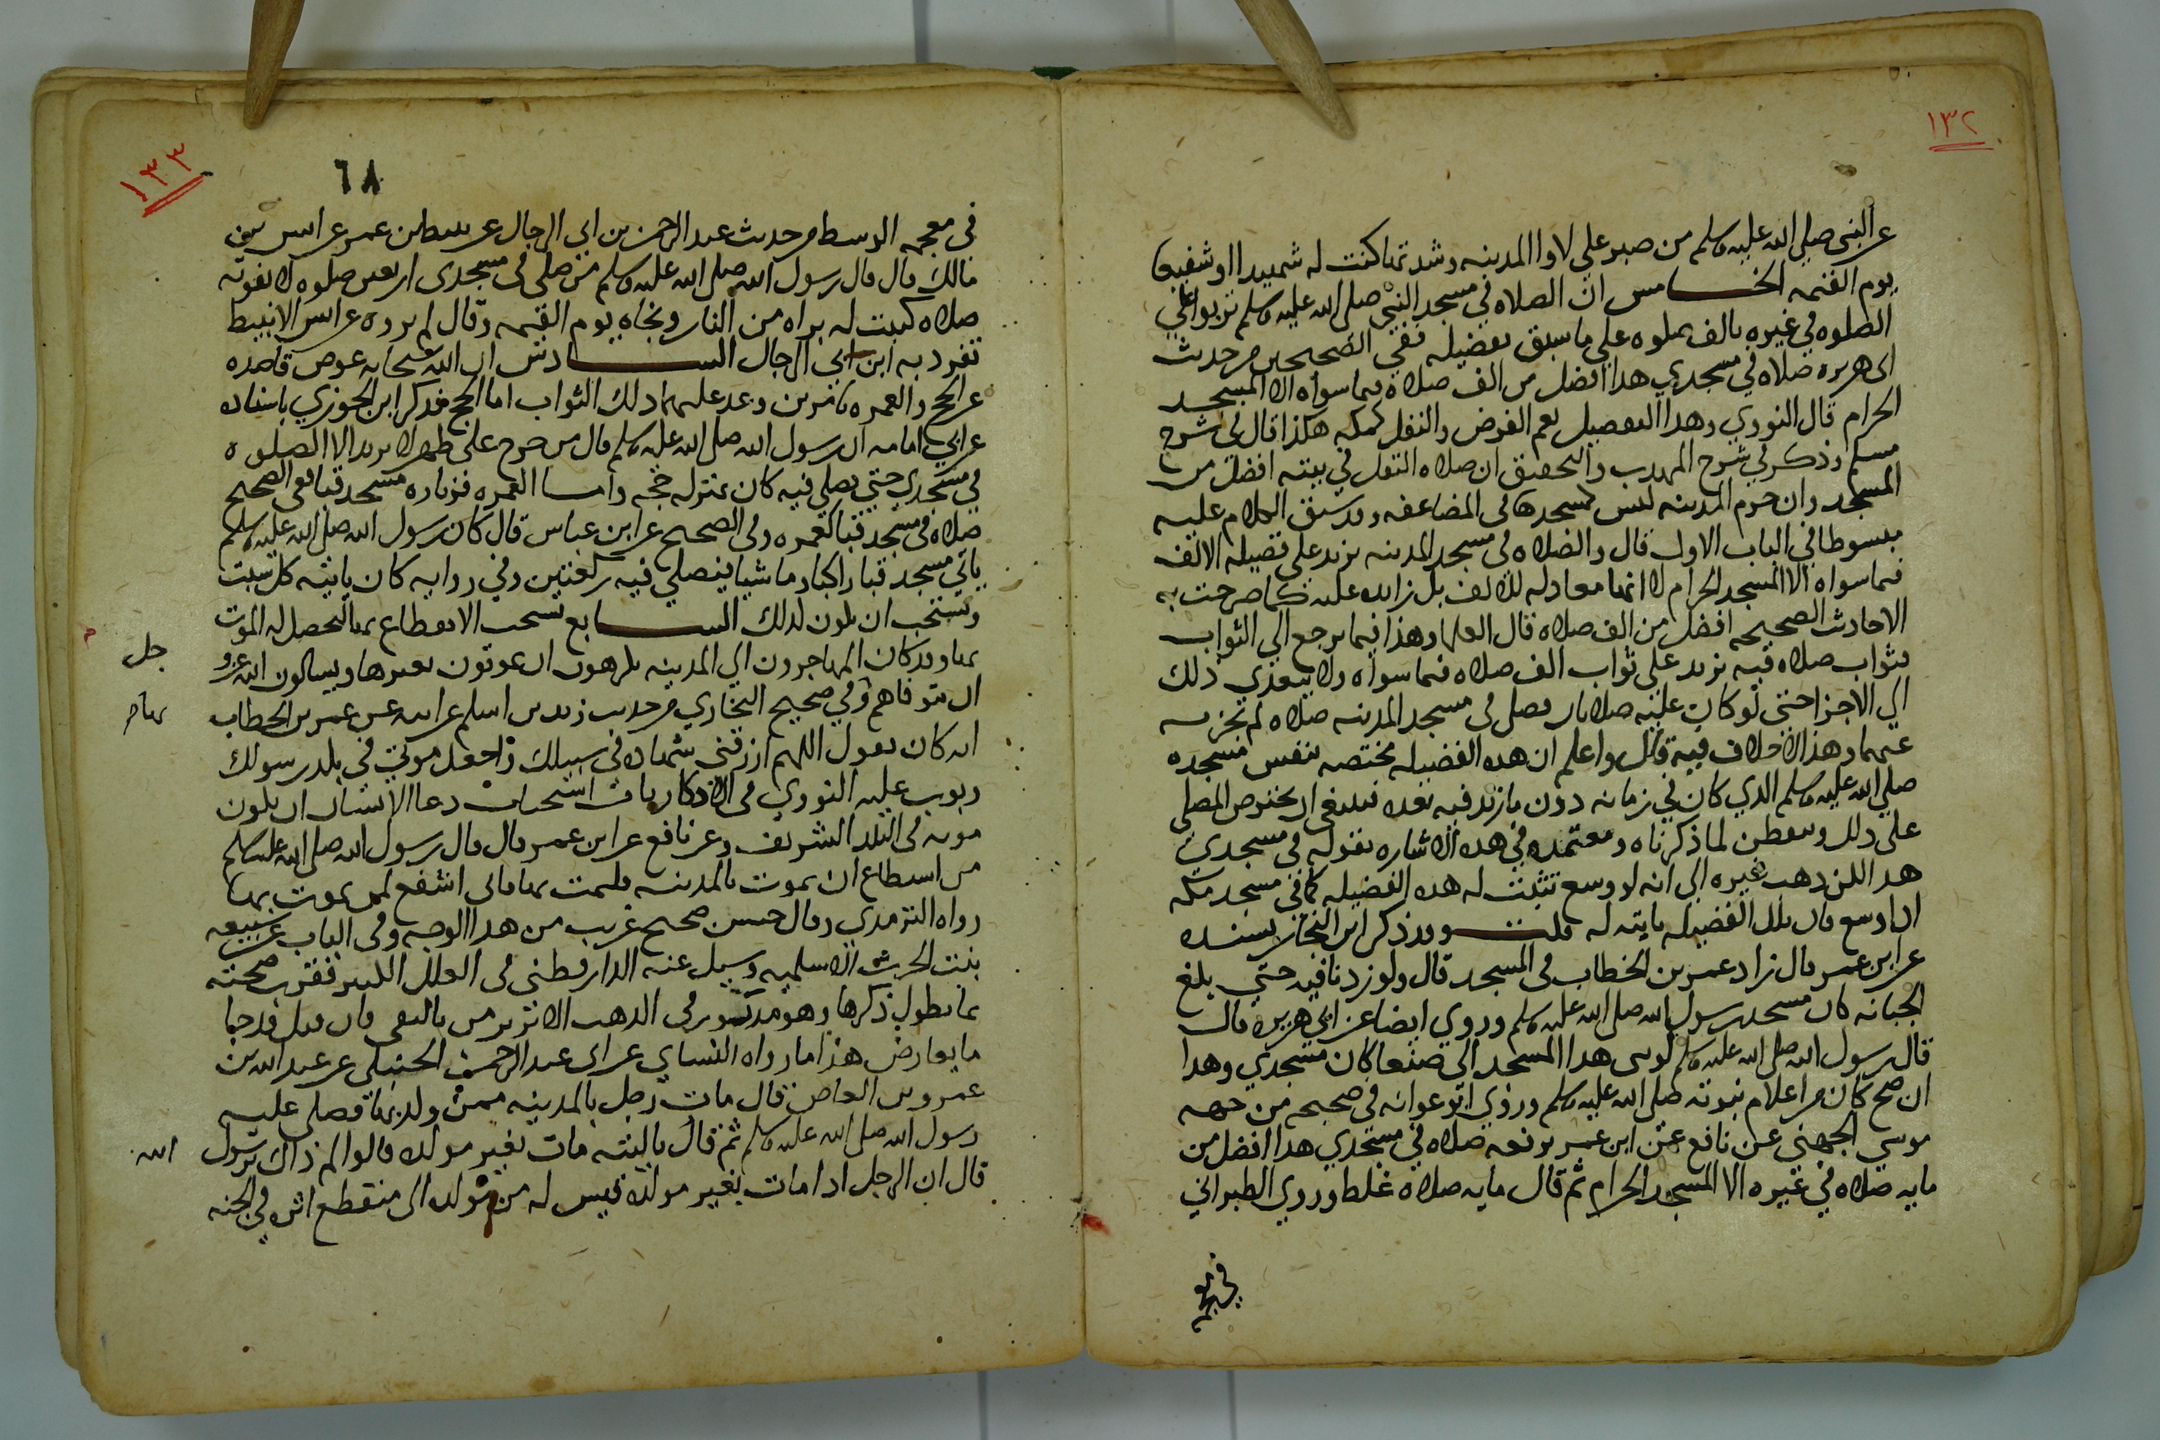 ١٣٢
عن النبي صلى الله عليه وسلم من صبر على لاوا المدينه وشدتها كنت له شهيدا او شفيعا
يوم القيمه الخامس ان الصلاه في مسجد النبي صلى الله عليه وسلم تربوا على
الصلوه في غيره بالف صلوه على ما سبق تفضيله ففي الصحيحين من حديث
ابى هريره صلاه في مسجدي هذا افضل من الف صلاه فيما سواه الا المسجد
الحرام قال النووي وهذا التفضيل يعم الفرض والنفل كمكه هكذا قال في شرح
مسلم وذكر في شرح المهدب والتحقيق ان صلاه النفل في بيته افضل من
المسجد وان حرم المدينه ليس كمسجدها في المضاعفه وقد سبق الكلام عليه
مبسوطا في الباب الاول قال والصلاه في مسجد المدينه تزيد على فضيله الالف
فيما سواه الا المسجد الحرام لا انها معادله للالف بل زايده عليه كما صرحت به
الاحاديث الصحيحه افضل من الف صلاه قال العلما وهذا فيما يرجع الى الثواب
فثواب صلاه فيه تزيد على ثواب الف صلاه فيما سواه ولا يتعدي ذلك
الي الاجزا حتى لو كان عليه صلاتان فصلى في مسجد المدينه صلاه لم تجزيه
عنهما وهذا لا خلاف فيه قال واعلم ان هذه الفضيله مختصه بنفس مسجده
صلى الله عليه وسلم الذي كان في زمانه دون ما زيد فيه بعده فينبغي ان يحرص المصلي
على ذلك ويتفطن لما ذكرناه ومعتمده في هذه الاشاره بقوله في مسجدي
هذا لكن ذهب غيره الى انه لو وسع تثبت له هذه الفضيله كما في مسجد مكه
اذا وسع فان تلك الفضيله ثابته له قلت وقد ذكر ابن النجار بسنده
عن ابن عمر قال زاد عمر بن الخطاب في المسجد قال ولو زدنا فيه حتي بلغ
الجبانه كان مسجد رسول الله صلى الله عليه وسلم وروي ايضا عن ابي هريره قال
قال رسول الله صلى الله عليه وسلم لو بنى هذا المسجد الى صنعا كان مسجدي وهذا
ان صح كان من اعلام نبوته صلى الله عليه وسلم وروي ابو عوانه في صحيحه من جهه
موسي الجهني عن نافع عن ابن عمر يرفعه صلاه في مسجدي هذا افضل من
مايه صلاه في غيره الا المسجد الحرام ثم قال مايه صلاه غلط وروي الطبراني
في معجمه
١٣٣
٦٨
في معجمه الاوسط من حديث عبد الرحمن بن ابي الرجال عن نبيط بن عمر عن انس بن
مالك قال قال رسول الله صلى الله عليه وسلم من صلى في مسجدى اربعين صلوه لا تفوته
صلاه كتبت له براه من النار ونجاه يوم القيمه وقال لم يروه عن انس الا نبيط
تفرد به ابن ابي الرجال السادس ان الله سبحانه عوض قاصده
عن الحج والعمره بامرين وعد عليهما ذلك الثواب اما الحج فذكر ابن الجوزي باسناده
عن ابي امامه ان رسول الله صلى الله عليه وسلم قال من خرج على طهر لا يريد الا الصلوه
في مسجدي حتي يصلي فيه كان بمنزله حجه واما العمره فزياره مسجد قبا ففي الصحيح
صلاه في مسجد قبا كعمره وفي الصحيح عن ابن عباس قال كان رسول الله صلى الله عليه وسلم
ياتي مسجد قبا راكبا وماشيا فيصلي فيه ركعتين وفي روايه كان ياتيه كل سبت
ويستحب ان يكون لذلك السابع يستحب الانقطاع بها لتحصل له الموت
بها وقد كان المهاجرون الي المدينه يكرهون ان يموتون بغيرها ويسالون الله عز و
جل
ان يتوفاهم وفي صحيح البخاري من حديث زيد بن اسلم عن ابيه عن عمر بن الخطاب
بها م
انه كان يقول اللهم ارزقني شهاده في سبيلك واجعل موتي في بلد رسولك
وبوب عليه النووي في الاذكار باب استحباب دعا الانسان ان يكون
موته في البلد الشريف وعن نافع عن ابن عمر قال قال رسول الله صلى الله عليه وسلم
من استطاع ان يموت بالمدينه فليمت بها فاني اشفع لمن يموت بها
رواه الترمدي وقال حسن صحيح غريب من هذا الوجه وفى الباب عن سبيعه
بنت الحرث الاسلميه وسيل عنه الدارقطني في العلل الكبير فقرب صحته
بما يطول ذكرها وهو مذكور في الذهب الابريز من بالبقى فان قيل قد جا
ما يعارض هذا ما رواه النساي عن ابى عبد الرحمن الحبلى عن عبد الله بن
عمرو بن العاص قال مات رجل بالمدينه ممن ولد بها فصلى عليه
رسول الله صلى الله عليه وسلم ثم قال ياليته مات بغير مولده قالوا لم ذاك يرسول
الله
قال ان الرجل اذا مات بغير مولده قيس له من مولده الى منقطع اثره في الجنه